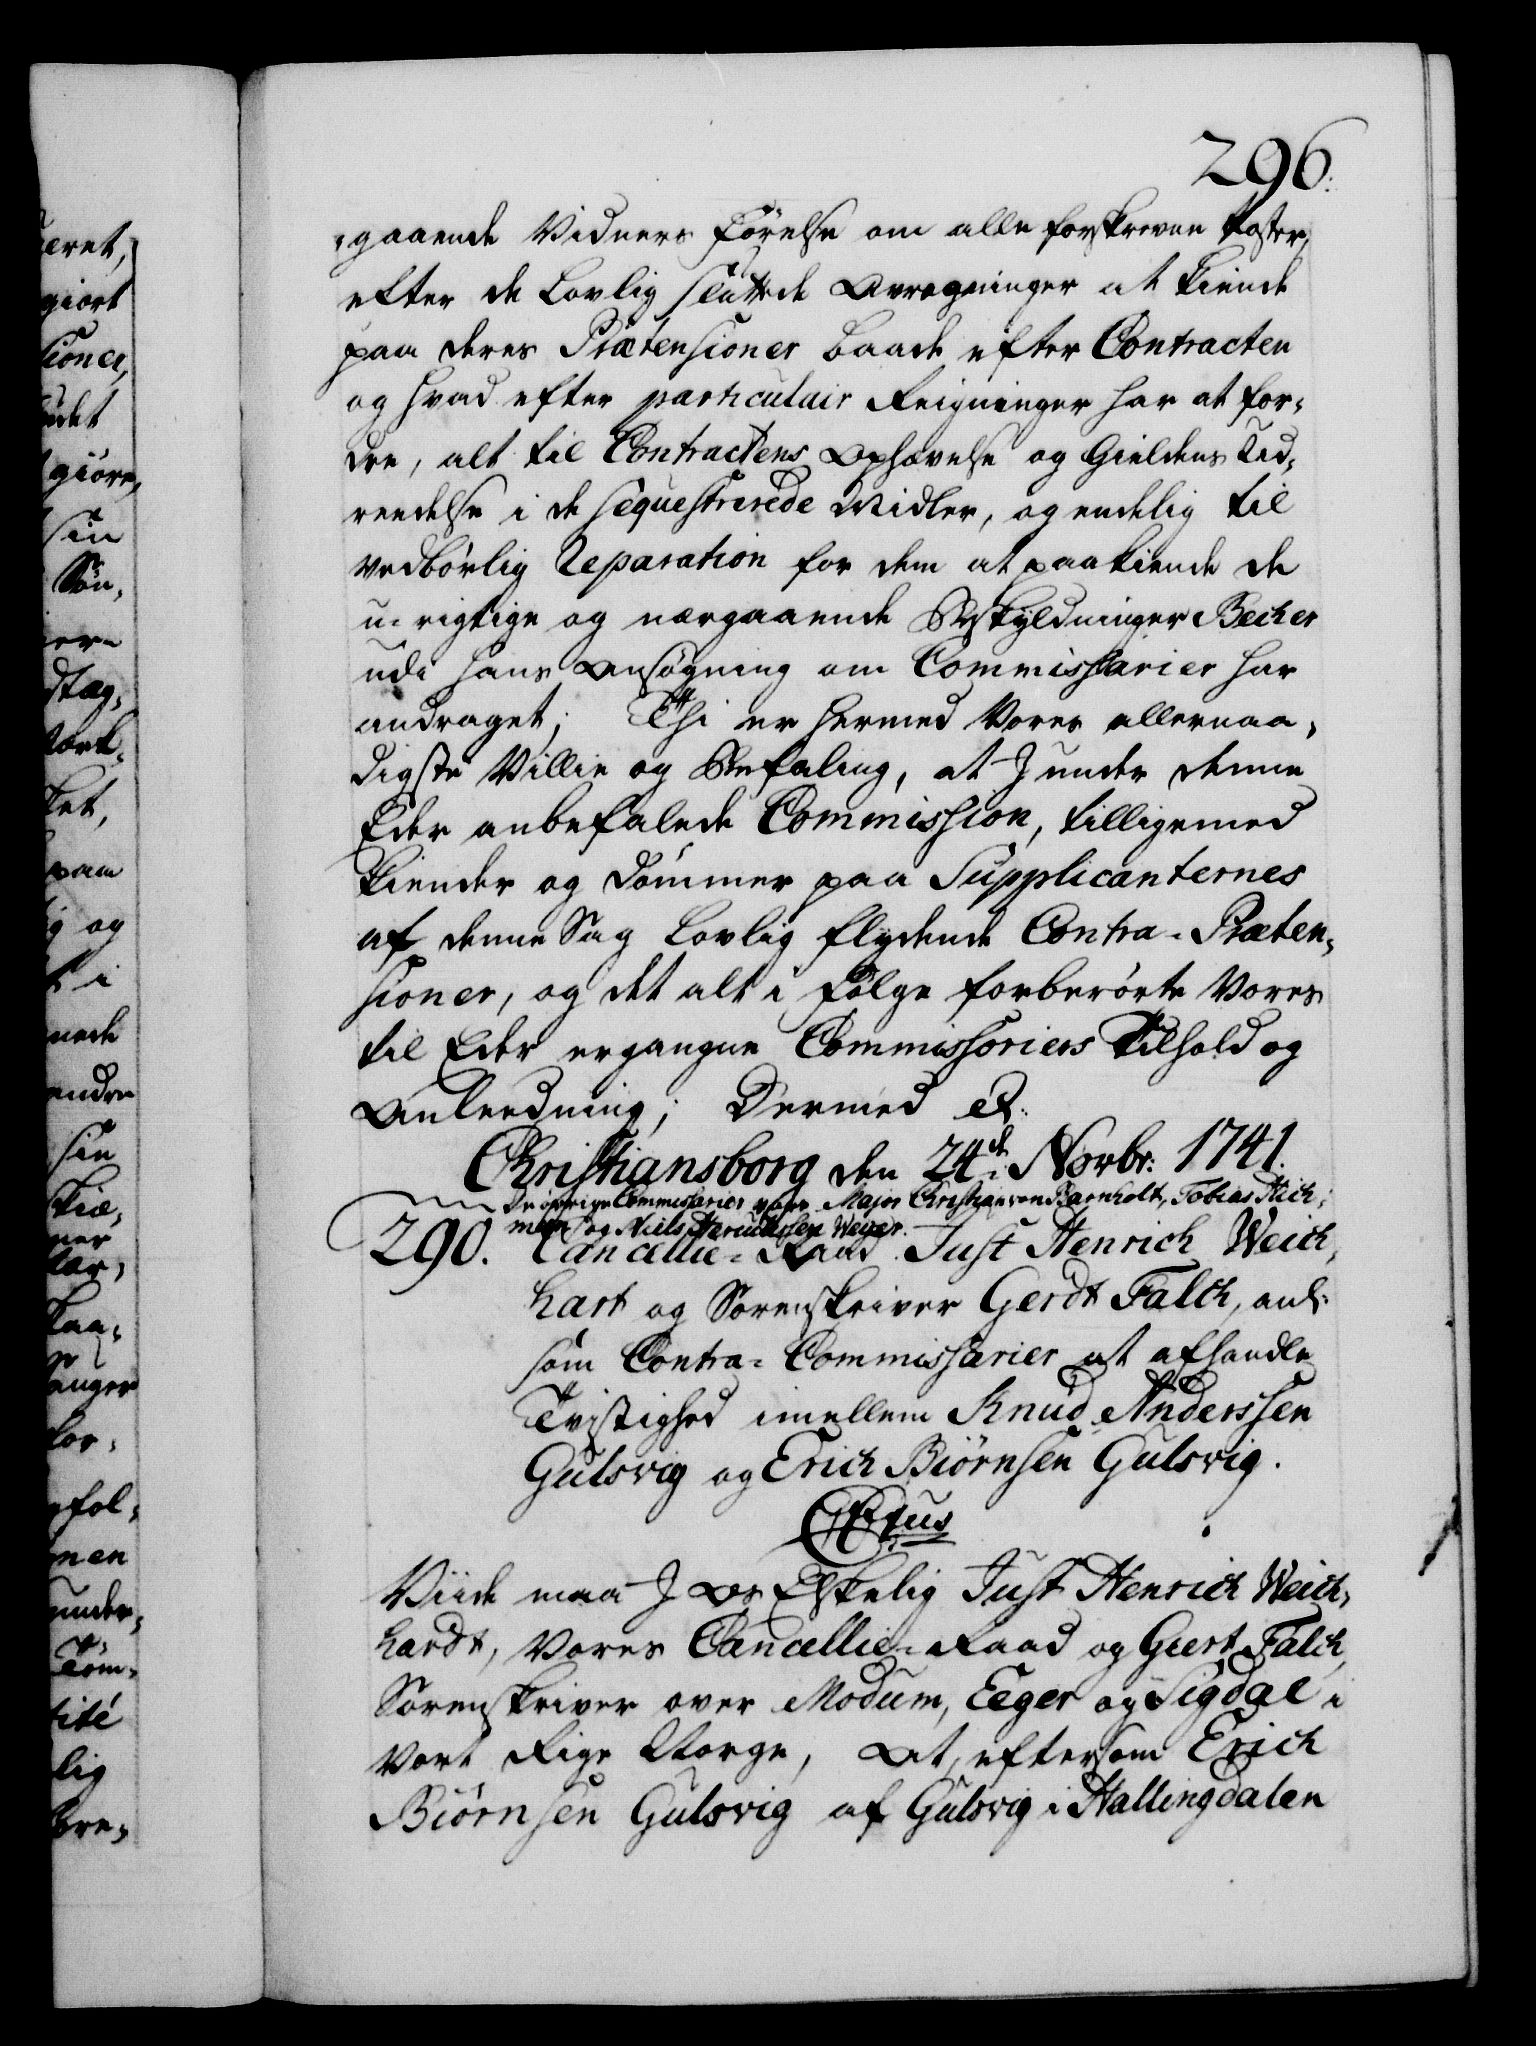 296.
gaaende Vidners Förelse om alle forskrevne Poster,
efter de Lovlig sluttede Avregninger at kiende
paa deres Prætensioner baade efter Contracten
og hvad efter particulair Reigninger har at for-
dre, alt til Contractens Ophævelse og Gieldens Ud-
reedelse i de sequestrerede Midler, og endelig til
vedbörlig Reparation for dem at paakiende de
u-rigtige og nærgaaende Beskyldninger Becher
udi hans Ansögning om Commissarier har
andraget; Thi er hermed Vores allernaa-
digste Villie og Befaling, at I under denne
Eder anbefalede Commission, tilligemed
kiender og dömmer paa Supplicanternes
af denne Sag Lovlig flydende Contra-Præten-
sioner, og det alt i Fölge forberörte Vores
til Eder ergangne Commissoriers Tilhold og
Anleedning; Dermed &.
Christiansborg den 24de Novbr: 1741.
De övrige Commissarier vare Major Christian von Barnholt, Tobias Hich-
man og Niels Weyer.
290. Cancellie-Raad Just Henrich Weich-
hart og Sorenskriver Gerdt Falch, anl:
som Contra-Commissarier at afhandle
Tvistighed imellem Knud Anderssen
Gulsvig og Erich Biörnsen Gulsvig.
C6tus
Viide maa I Os Elskelig Just Henrich Weich-
hardt, Vores Cancellie-Raad og Giert Falch,
Sorenskriver over Modum, Eeger og Sigdal i
Vort Rige Norge, At, eftersom Erich
Biörnsen Gulsvig af Gulsvig i Hallingdalen